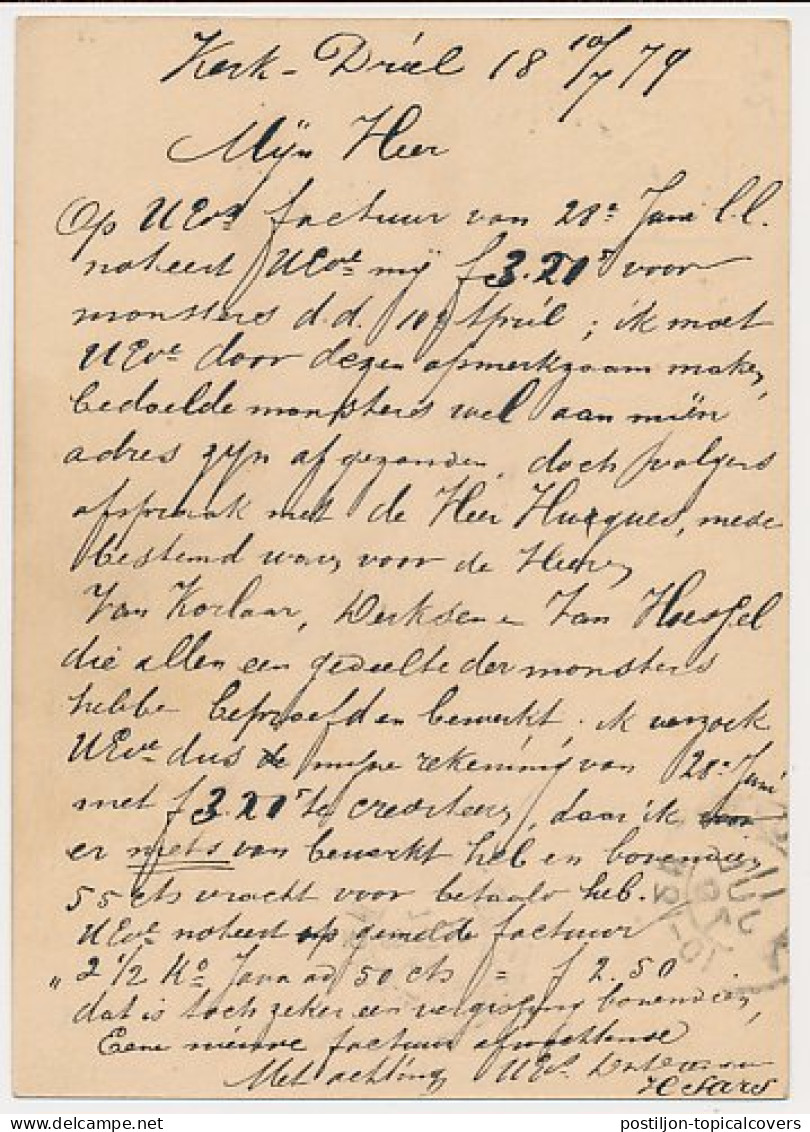 Kerk-Driel 18 10/7 79
Mijn Heer
Op UEve factuur van 28e Juni l.l.
noteert UEve mij f 3.20⁵ voor
monsters d.d. 10 April ; ik moet
UEve door dezen opmerkzaam maken,
bedoelde monsters wel aan mijn
adres zijn afgezonden, doch volgens
afspraak met de Heer Hucques, mede
bestemd waren voor de Heeren
Van Korlaar, Derksen en Van Hoessel
die allen een gedeelte der monsters
hebben beproefd en bewerkt ; ik verzoek
UEve dus de mijne rekening van 28e Juni
met f 3.20⁵ te crediteeren, daar ik voor
er niets van bewerkt heb en bovendien
55 cts vracht voor betaald heb.
UEve noteert op gemelde factuur
„ 2 1/2 Ko Java ad 50 cts = f 2.50
dat is toch zeker een vergissing bovendien,
Eene nieuwe factuur afwachtende
Met achting UEve
H Sars
postiljon-topicalcovers